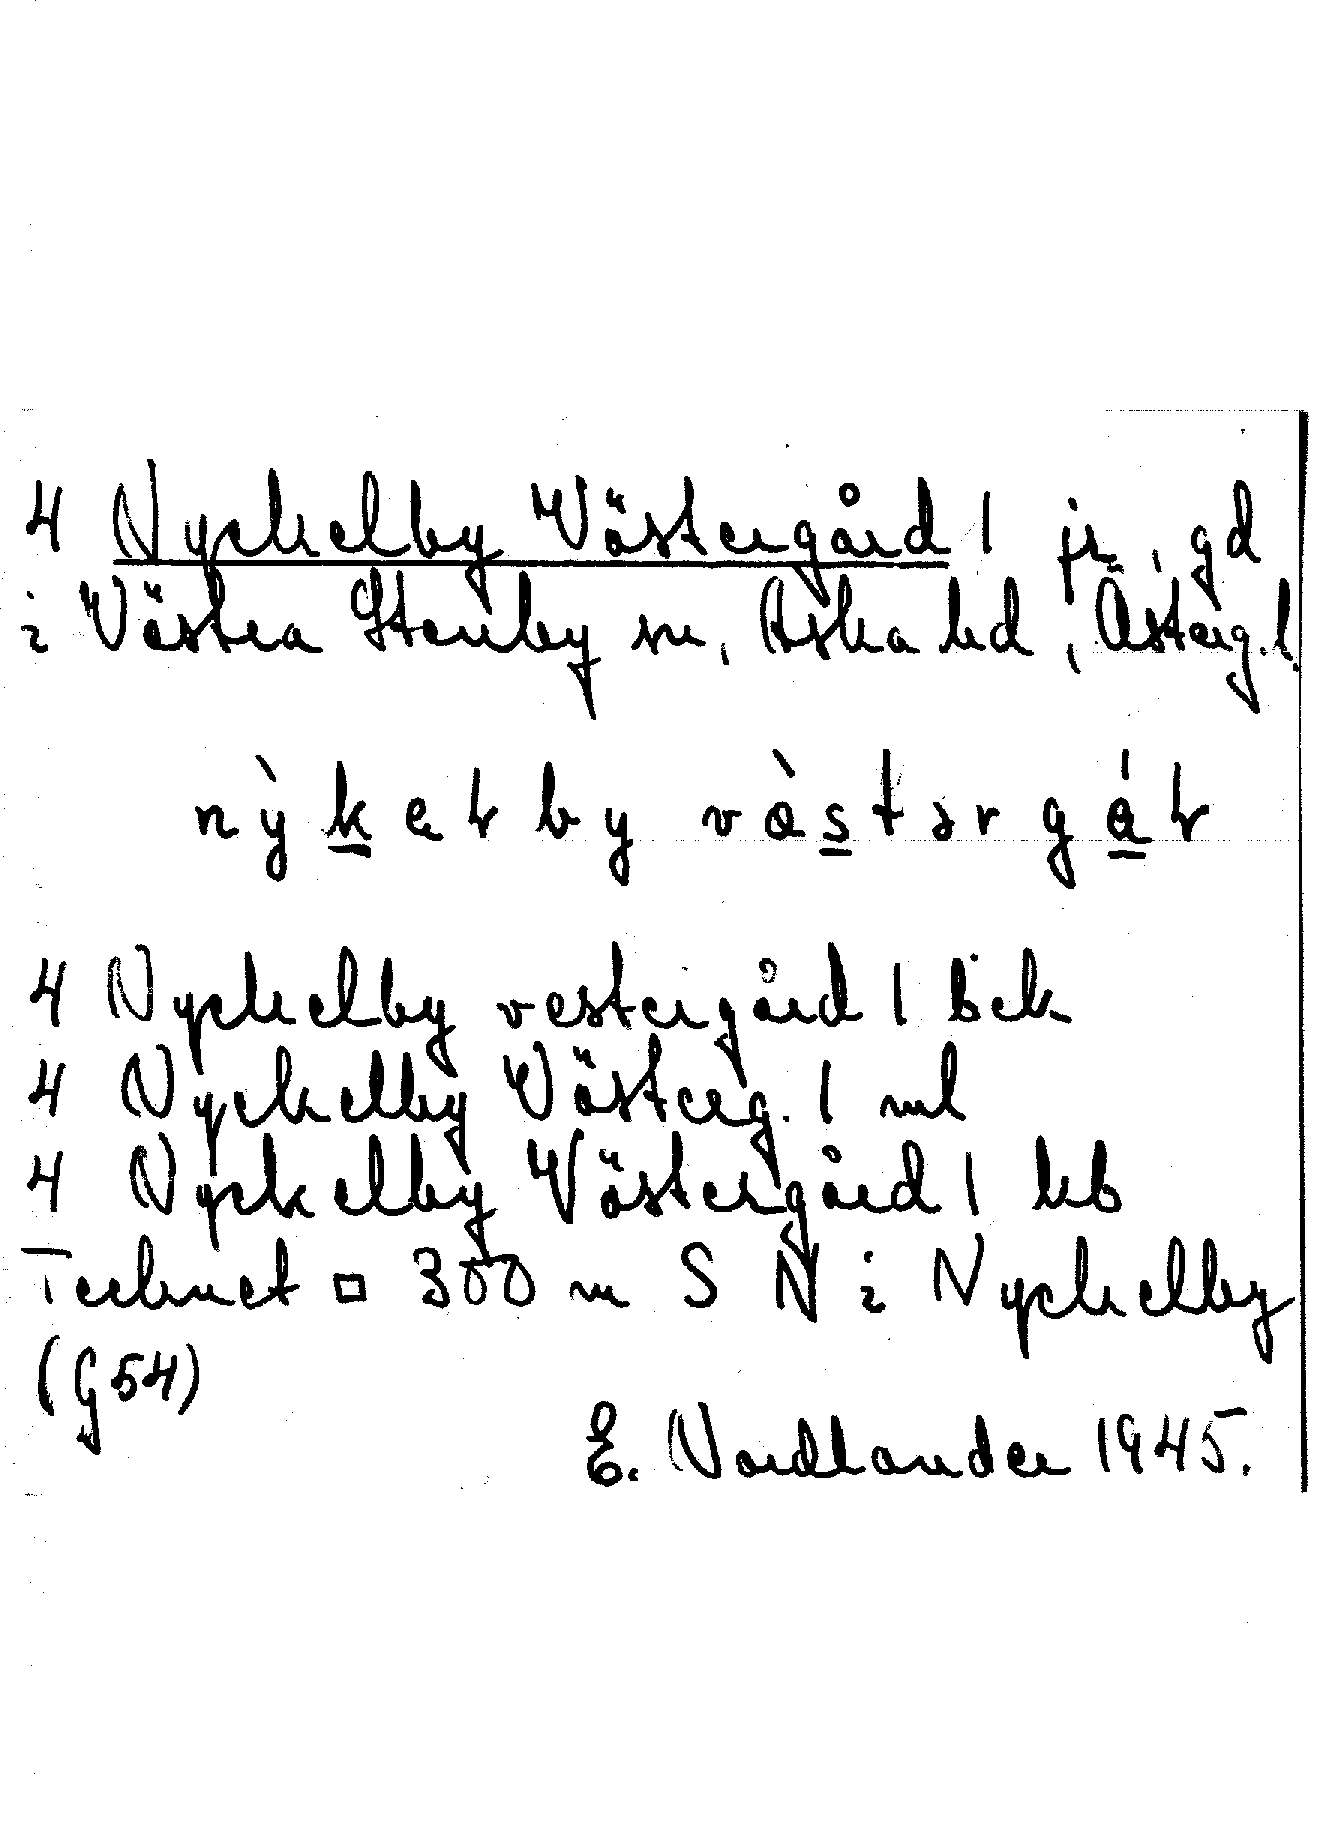 4 Nyckelby Västergård 1 jr, gd
i Västra Stenby sn, Aska hd, Österg.l.
nỳkeɫby vàstərgát
4 Nyckelby vestergård 1 bek
4 Nyckelby Västerg. 1 ml
4 Nyckelby Västergård 1 hb
Tecknet □ 300 m S N i Nyckelby
(G54)
E. Nordlander 1945.